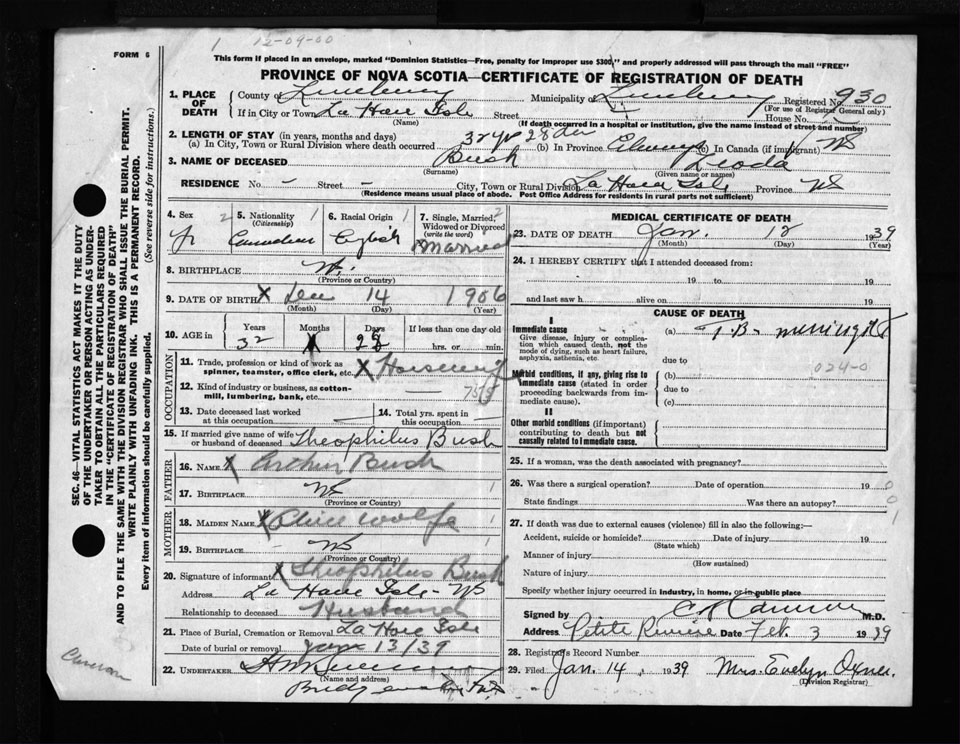 1 12-09-00
FORM 6
This form if placed in an envelope, marked "Dominion Statistics—Free, penalty for improper use $300," and properly addressed will pass through the mail "FREE"
PROVINCE OF NOVA SCOTIA—CERTIFICATE OF REGISTRATION OF DEATH
1. PLACE OF DEATH County of Lunenburg Municipality of Lunenburg Registered No. 930
(For use of Registrar General only)
If in City or Town La Have Isle Street House No.
(Name) (If death occurred in a hospital or institution, give the name instead of street and number)
2. LENGTH OF STAY (in years, months and days)
(a) In City, Town or Rural Division where death occurred 32 yr 28 da (b) In Province Always (c) In Canada (if immigrant) NS
3. NAME OF DECEASED Bush Leoda
(Surname) (Given name or names)
RESIDENCE No. – Street – City, Town or Rural Division La Have Isle Province NS
(Residence means usual place of abode. Post Office Address for residents in rural parts not sufficient)
SEC. 46—VITAL STATISTICS ACT MAKES IT THE DUTY
OF THE UNDERTAKER OR PERSON ACTING AS UNDER-
TAKER TO OBTAIN ALL THE PARTICULARS REQUIRED
IN THE "CERTIFICATE OF REGISTRATION OF DEATH"
AND TO FILE THE SAME WITH THE DIVISION REGISTRAR WHO SHALL ISSUE THE BURIAL PERMIT.
WRITE PLAINLY WITH UNFADING INK. THIS IS A PERMANENT RECORD.
Every item of information should be carefully supplied. (See reverse side for instructions.)
4. Sex 2 5. Nationality 1 (Citizenship) 6. Racial Origin 1 7. Single, Married, 2 Widowed or Divorced (write the word)
Canadian English Married
8. BIRTHPLACE NS.
(Province or Country)
9. DATE OF BIRTH X Dec 14 1906
(Month) (Day) (Year)
10. AGE in Years Months Days If less than one day old
32 X 28 hrs. or min.
OCCUPATION
11. Trade, profession or kind of work as
spinner, teamster, office clerk, etc. X Housewife
12. Kind of industry or business, as cotton-
mill, lumbering, bank, etc.
13. Date deceased last worked at this occupation 14. Total yrs. spent in this occupation
15. If married give name of wife or husband of deceased Theophilus Bush
FATHER
16. NAME X Arthur Bush
17. BIRTHPLACE NS 1
(Province or Country)
MOTHER
18. MAIDEN NAME X Wolfe 1
19. BIRTHPLACE NS 1
(Province or Country)
20. Signature of informant X Theophilus Bush
Address La Have Isle - NS
Relationship to deceased Husband
21. Place of Burial, Cremation or Removal La Have Isle
Date of burial or removal Jan 13/39
22. UNDERTAKER
(Name and address)
Cameron
MEDICAL CERTIFICATE OF DEATH
23. DATE OF DEATH Jan. 12 1939
(Month) (Day) (Year)
24. I HEREBY CERTIFY that I attended deceased from:
19 to 19
and last saw h alive on 19
CAUSE OF DEATH
I
Immediate cause (a) T.B. meningitis
Give disease, injury or complica-
tion which caused death, not the
mode of dying, such as heart failure,
asphyxia, asthenia, etc. due to
024-0
Morbid conditions, if any, giving rise to
immediate cause (stated in order
proceeding backwards from im-
mediate cause). (b)
due to
(c)
II
Other morbid conditions (if important)
contributing to death but not
causally related to immediate cause.
25. If a woman, was the death associated with pregnancy?
26. Was there a surgical operation? Date of operation 19 0
State findings Was there an autopsy? 0
27. If death was due to external causes (violence) fill in also the following:— 1
Accident, suicide or homicide? Date of injury 19
(State which)
Manner of injury
(How sustained)
Nature of injury
Specify whether injury occurred in industry, in home, or in public place
Signed by M.D.
Address Petite Riviere Date Feb. 3 1939
28. Registrar's Record Number
29. Filed Jan. 14 1939 Mrs. Evelyn Oxner.
(Division Registrar)